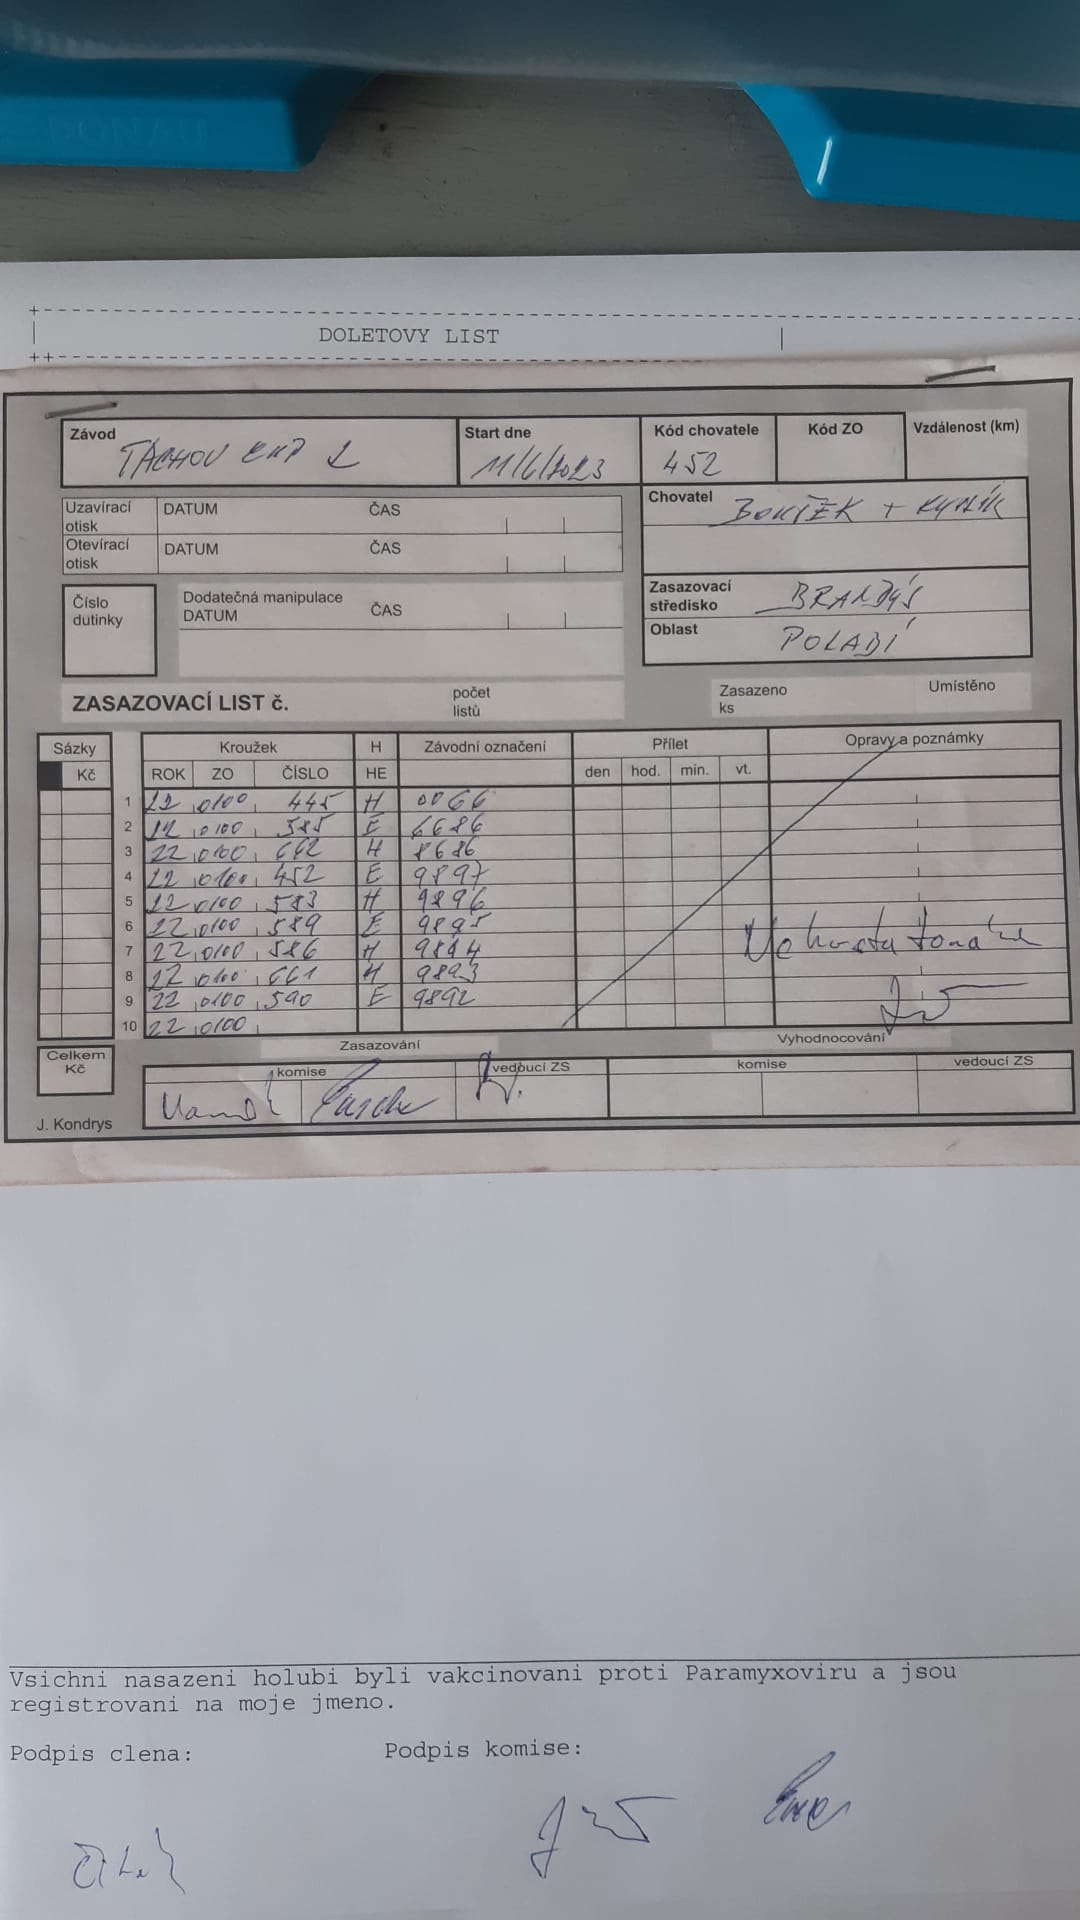 DOLETOVY LIST
Závod TACHOV
Start dne 11/6/2023
Kód chovatele 452
Kód ZO
Vzdálenost (km)
Uzavírací otisk DATUM ČAS
Otevírací otisk DATUM ČAS
Chovatel
Číslo dutinky
Dodatečná manipulace
DATUM ČAS
Zasazovací středisko BRANDÝS
Oblast POLABÍ
ZASAZOVACÍ LIST č. počet listů
Zasazeno ks Umístěno
Sázky Kroužek H Závodní označení Přílet Opravy a poznámky
Kč ROK ZO ČÍSLO HE den hod. min. vt.
1 22 0100 445 H 0066
2 22 0100 585 E 6686
3 22 0100 662 H 8686
4 22 0100 452 E 9897
5 22 0100 583 H 9896
6 22 0100 589 E 9895
7 22 0100 586 H 9894
8 22 0100 661 H 9893
9 22 0100 590 E 9892
10 22 0100
Celkem Kč
Zasazování Vyhodnocování
komise vedoucí ZS komise vedoucí ZS
J. Kondrys
Vsichni nasazeni holubi byli vakcinovani proti Paramyxoviru a jsou
registrovani na moje jmeno.
Podpis clena: Podpis komise: